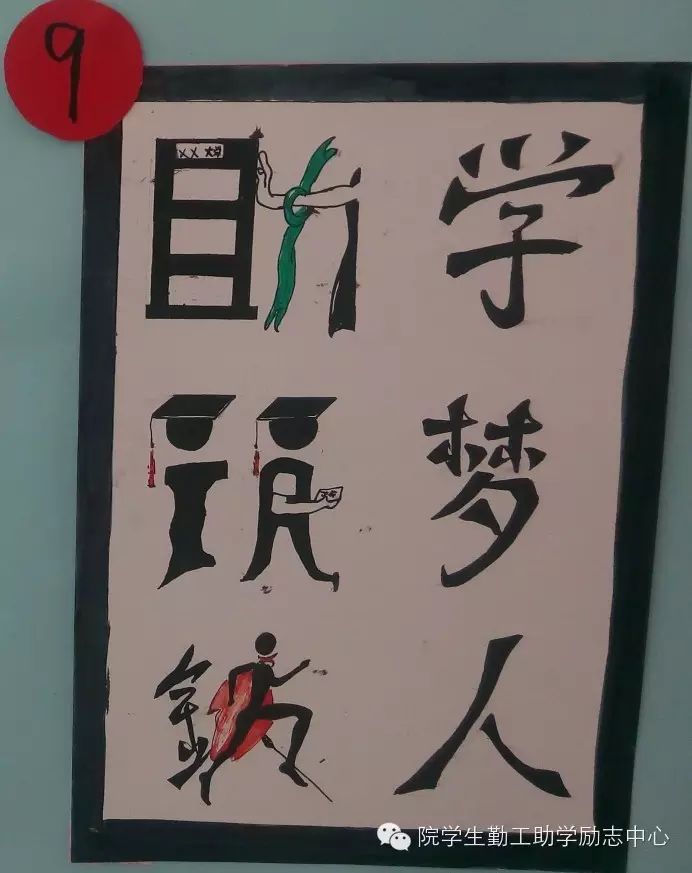 9
XX大学
助学
筑梦
铸人
院学生勤工助学励志中心